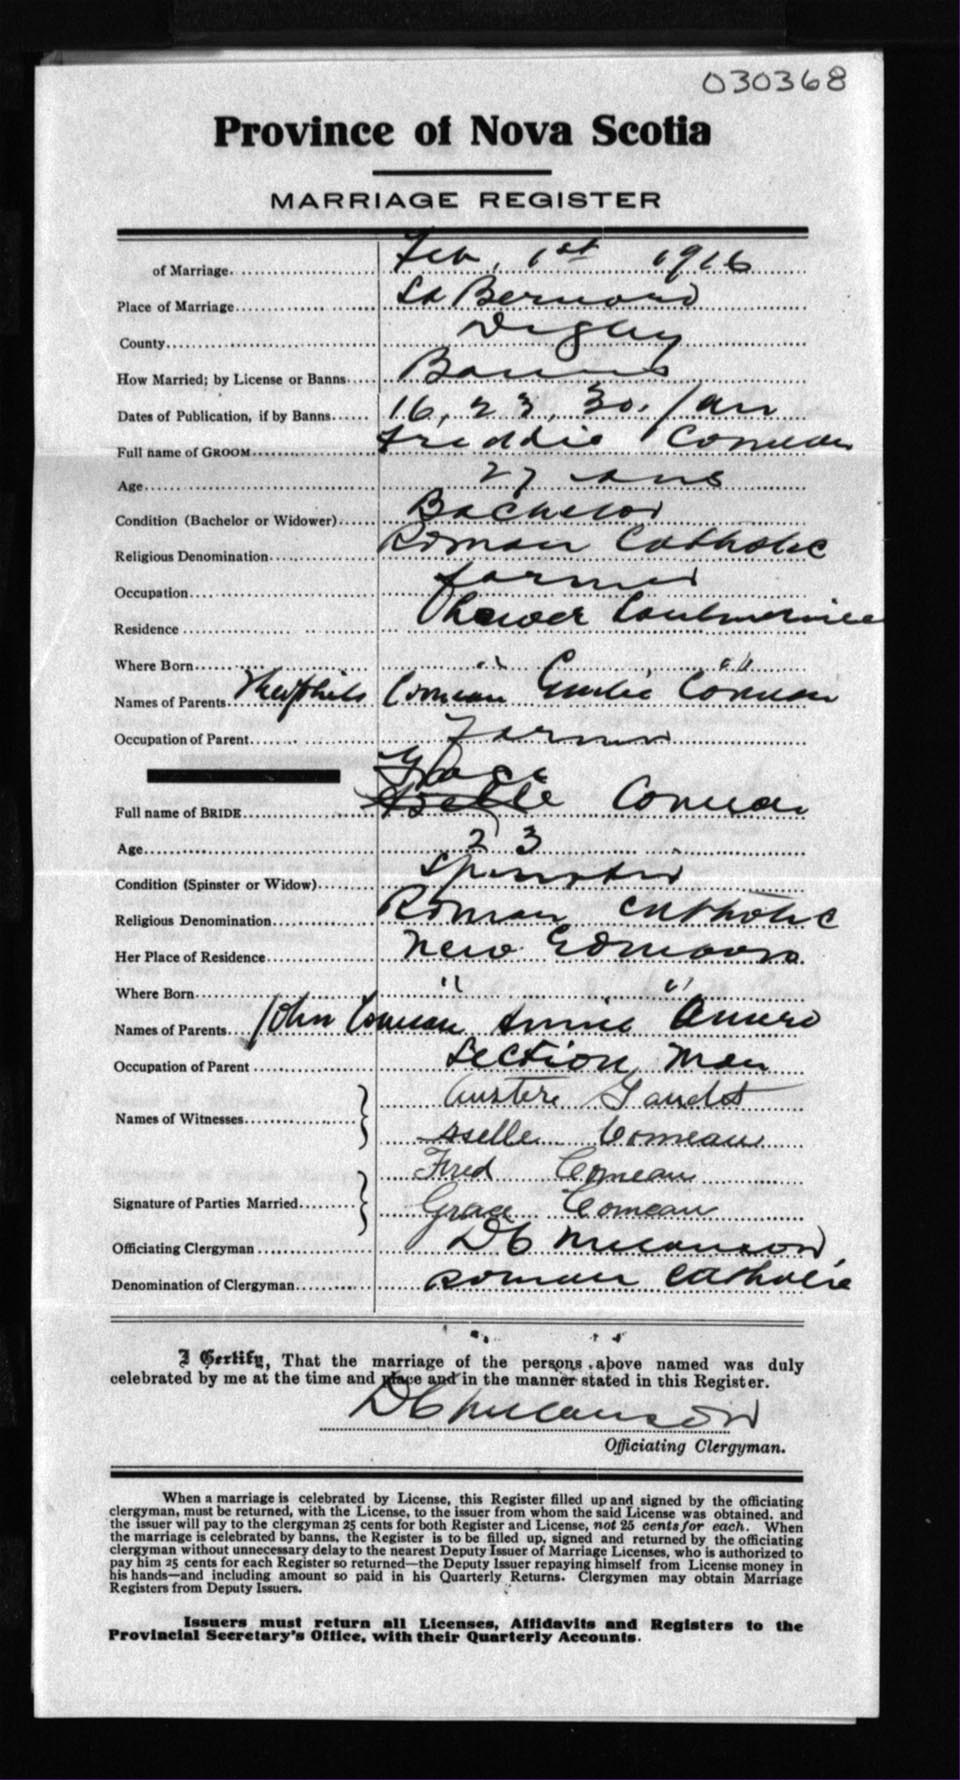 030368
Province of Nova Scotia
MARRIAGE REGISTER
of Marriage. Feb, 1st 1916
Place of Marriage St Bernard
County Digby
How Married; by License or Banns Banns
Dates of Publication, if by Banns 16, 23, 30. Jan
Full name of GROOM Freddie Comeau
Age 27 ans
Condition (Bachelor or Widower) Bachelor
Religious Denomination Roman Catholic
Occupation Farmer
Residence
Where Born " "
Names of Parents Comeau Emilie Comeau
Occupation of Parent Farmer
Grace
Full name of BRIDE Comeau
Age 23
Condition (Spinster or Widow) Spinster
Religious Denomination Roman Catholic
Her Place of Residence New Edmond
Where Born " "
Names of Parents John Comeau Annie
Occupation of Parent Section Man
Names of Witnesses Austere Gaudet
Comeau
Fred Comeau
Signature of Parties Married Grace Comeau
Officiating Clergyman
Denomination of Clergyman Roman Catholic
I Certify, That the marriage of the persons above named was duly
celebrated by me at the time and place and in the manner stated in this Register.
Officiating Clergyman.
When a marriage is celebrated by License, this Register filled up and signed by the officiating
clergyman, must be returned, with the License, to the issuer from whom the said License was obtained, and
the issuer will pay to the clergyman 25 cents for both Register and License, not 25 cents for each. When
the marriage is celebrated by banns, the Register is to be filled up, signed and returned by the officiating
clergyman without unnecessary delay to the nearest Deputy Issuer of Marriage Licenses, who is authorized to
pay him 25 cents for each Register so returned—the Deputy Issuer repaying himself from License money in
his hands—and including amount so paid in his Quarterly Returns. Clergymen may obtain Marriage
Registers from Deputy Issuers.
Issuers must return all Licenses, Affidavits and Registers to the
Provincial Secretary's Office, with their Quarterly Accounts.